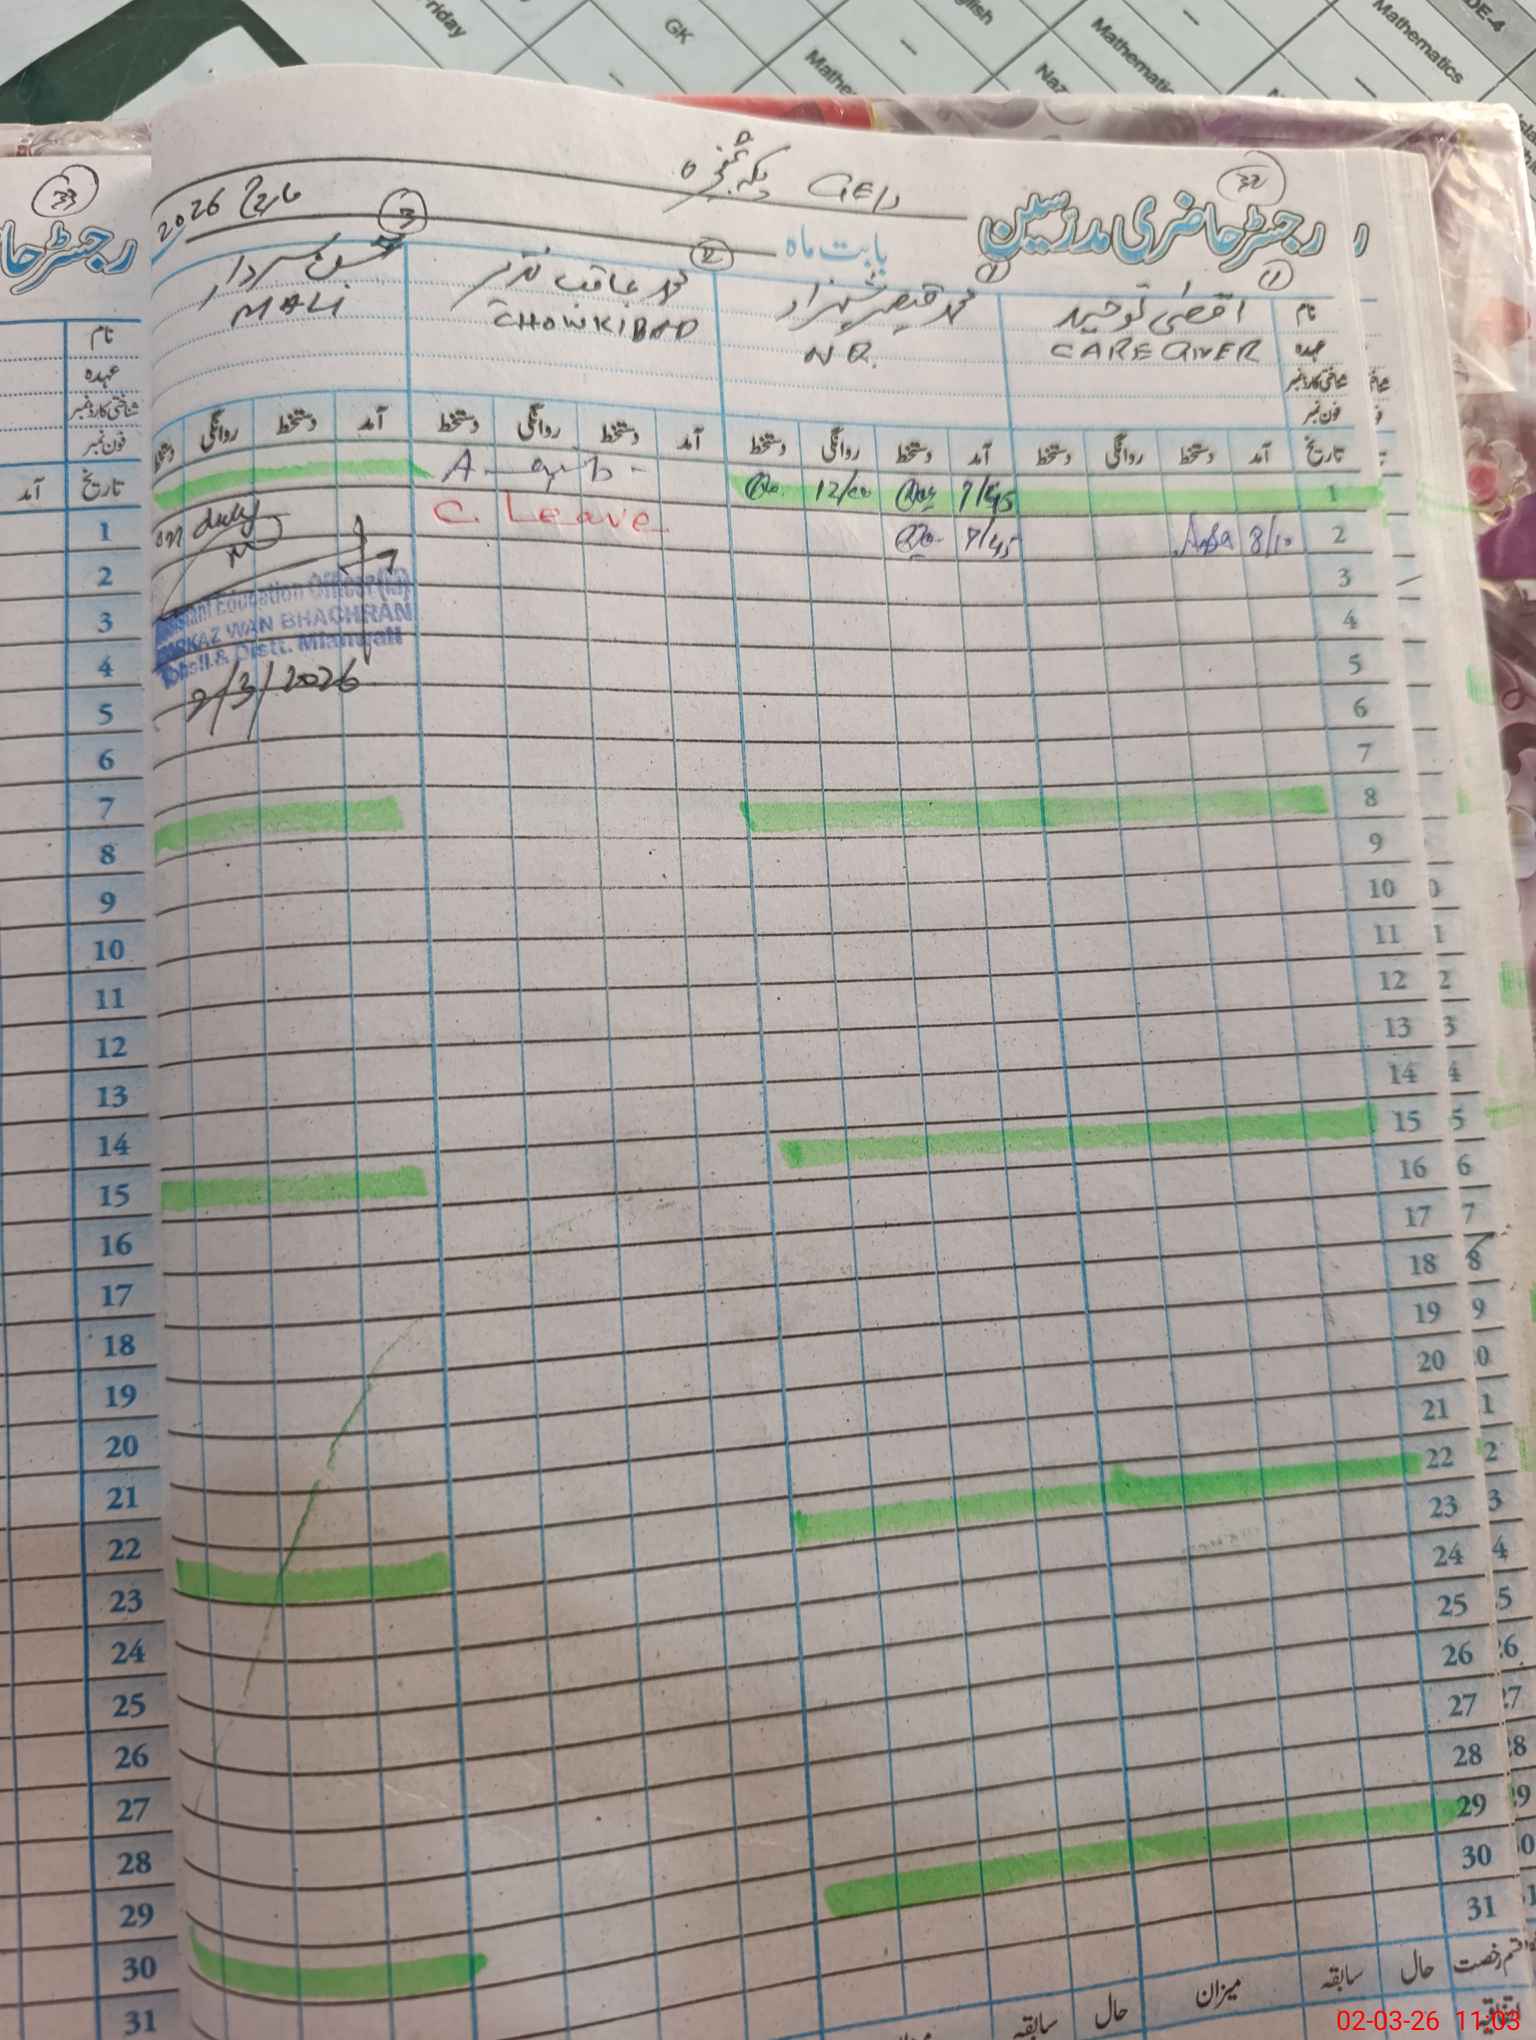 Friday
GK
Mathematics
DE-4
English
Mathematics
33
32
رجسٹر حاضری مدرسین
بابت ماہ
مارچ 2026
1
2
3
نام
اقصیٰ توحید
محمد قیصر شہزاد
محمد عاقب نذیر
عہدہ
CARE GIVER
N Q.
CHOWKIDAR
MALI
شناختی کارڈ نمبر
فون نمبر
تاریخ آمد دستخط روانگی دستخط آمد دستخط روانگی دستخط آمد دستخط روانگی دستخط آمد دستخط روانگی دستخط
1 7/45 12/00
2 8/10 7/45 C. Leave
on duty
3
4
5
6
7
8
9
10
11
12
13
14
15
16
17
18
19
20
21
22
23
24
25
26
27
28
29
30
31
Assistant Education Officer (M)
MARKAZ WAN BHACHRAN
Tehsil & Distt. Mianwali
2/3/2026
قسم رخصت حال سابقہ میزان حال سابقہ
اتفاقیہ
رجسٹر حا
نام
عہدہ
شناختی کارڈ نمبر
فون نمبر
تاریخ آمد
1
2
3
4
5
6
7
8
9
10
11
12
13
14
15
16
17
18
19
20
21
22
23
24
25
26
27
28
29
30
31
02-03-26 11:03